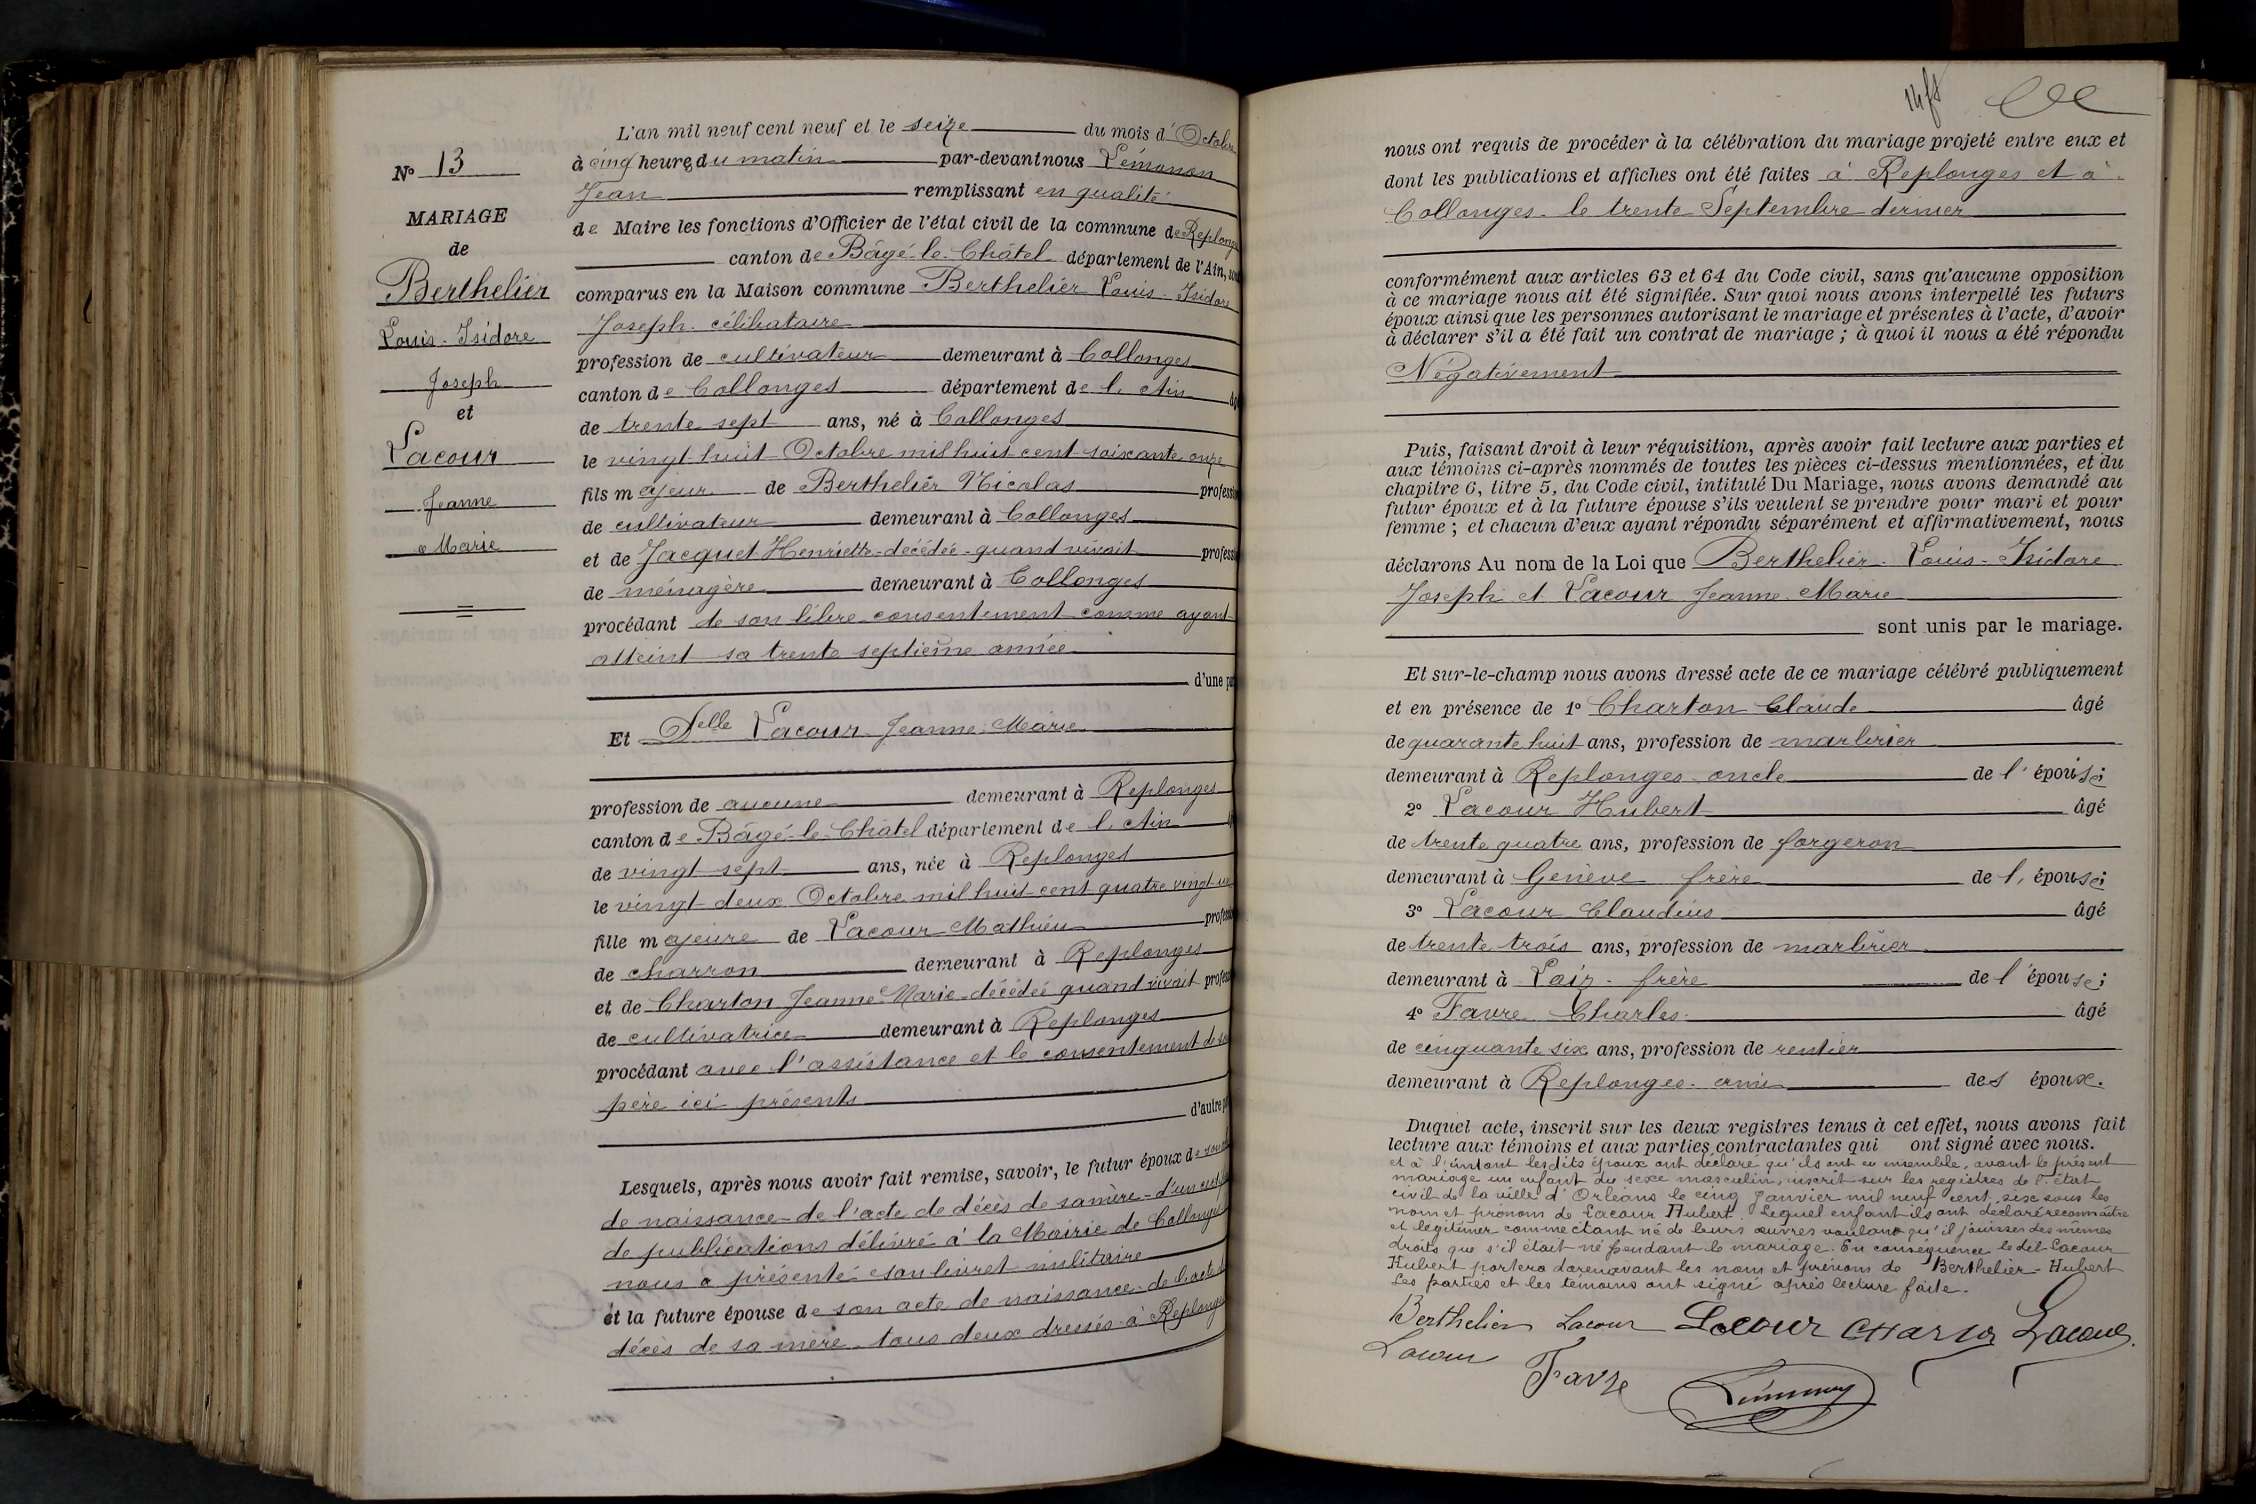 N° 13
MARIAGE
de
Berthelier
Louis-Isidore
Joseph
et
Lacour
Jeanne
Marie
L'an mil neuf cent neuf et le seize du mois d'Octobre
à cinq heures du matin par-devant nous Lémonon
Jean remplissant en qualité
de Maire les fonctions d'Officier de l'état civil de la commune de Replonges
canton de Bâgé-le-Châtel département de l'Ain, sont
comparus en la Maison commune Berthelier Louis-Isidore
Joseph célibataire
profession de cultivateur demeurant à Collonges
canton de Collonges département de l'Ain âgé
de trente sept ans, né à Collonges
le vingt huit Octobre mil huit cent soixante onze
fils majeur de Berthelier Nicolas profession
de cultivateur demeurant à Collonges
et de Jacquet Henriette - décédée - quand vivait profession
de ménagère demeurant à Collonges
procédant de son libre consentement comme ayant
atteint sa trente septième année
d'une part
Et Delle Lacour Jeanne Marie
profession de aucune demeurant à Replonges
canton de Bâgé-le-Châtel département de l'Ain
de vingt sept ans, née à Replonges
le vingt deux Octobre mil huit cent quatre vingt un
fille majeure de Lacour Mathieu profession
de charron demeurant à Replonges
et de Charton Jeanne Marie décédée quand vivait profession
de cultivatrice demeurant à Replonges
procédant avec l'assistance et le consentement de son
père ici présents
d'autre part
Lesquels, après nous avoir fait remise, savoir, le futur époux de son acte
de naissance - de l'acte de décès de sa mère - d'un certificat
de publications délivré à la Mairie de Collonges
nous a présenté son livret militaire
et la future épouse de son acte de naissance - de l'acte de
décès de sa mère - tous deux dressés à Replonges
nous ont requis de procéder à la célébration du mariage projeté entre eux et
dont les publications et affiches ont été faites à Replonges et à
Collonges - le trente Septembre dernier
conformément aux articles 63 et 64 du Code civil, sans qu'aucune opposition
à ce mariage nous ait été signifiée. Sur quoi nous avons interpellé les futurs
époux ainsi que les personnes autorisant le mariage et présentes à l'acte, d'avoir
à déclarer s'il a été fait un contrat de mariage ; à quoi il nous a été répondu
Négativement
Puis, faisant droit à leur réquisition, après avoir fait lecture aux parties et
aux témoins ci-après nommés de toutes les pièces ci-dessus mentionnées, et du
chapitre 6, titre 5, du Code civil, intitulé Du Mariage, nous avons demandé au
futur époux et à la future épouse s'ils veulent se prendre pour mari et pour
femme ; et chacun d'eux ayant répondu séparément et affirmativement, nous
déclarons Au nom de la Loi que Berthelier - Louis - Isidore
Joseph et Lacour Jeanne Marie
sont unis par le mariage.
Et sur-le-champ nous avons dressé acte de ce mariage célébré publiquement
et en présence de 1° Charton Claude âgé
de quarante huit ans, profession de marbrier
demeurant à Replonges - oncle de l'épouse ;
2° Lacour Hubert âgé
de trente quatre ans, profession de forgeron
demeurant à Genève frère de l'épouse ;
3° Lacour Claudius âgé
de trente trois ans, profession de marbrier
demeurant à Laiz - frère de l'épouse ;
4° Favre Charles âgé
de cinquante six ans, profession de rentier
demeurant à Replonges - ami des époux.
Duquel acte, inscrit sur les deux registres tenus à cet effet, nous avons fait
lecture aux témoins et aux parties contractantes qui ont signé avec nous.
et à l'instant lesdits époux ont déclaré qu'ils ont eu ensemble, avant le présent
mariage un enfant du sexe masculin, inscrit sur les registres de l'état
civil de la ville d'Orléans le cinq Janvier mil neuf cent six sous les
nom et prénom de Lacour Hubert. Lequel enfant ils ont déclaré reconnaître
et légitimer comme étant né de leurs œuvres voulant qu'il jouisse des mêmes
droits que s'il était né pendant le mariage. En conséquence ledit Lacour
Hubert portera dorénavant les nom et prénom de Berthelier - Hubert
Les parties et les témoins ont signé après lecture faite.
Berthelier Lacour Lacour CHarton Lacour
Lacour Favre Lémonon